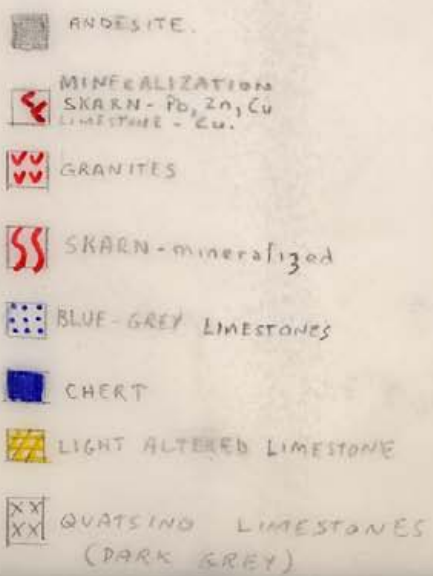 ANDESITE.
MINERALIZATION
SKARN - Pb, Zn, Cu
LIMESTONE - Cu.
GRANITES
SKARN-mineralized
BLUE-GREY LIMESTONES
CHERT
LIGHT ALTERED LIMESTONE
QUATSINO LIMESTONES
(DARK GREY)